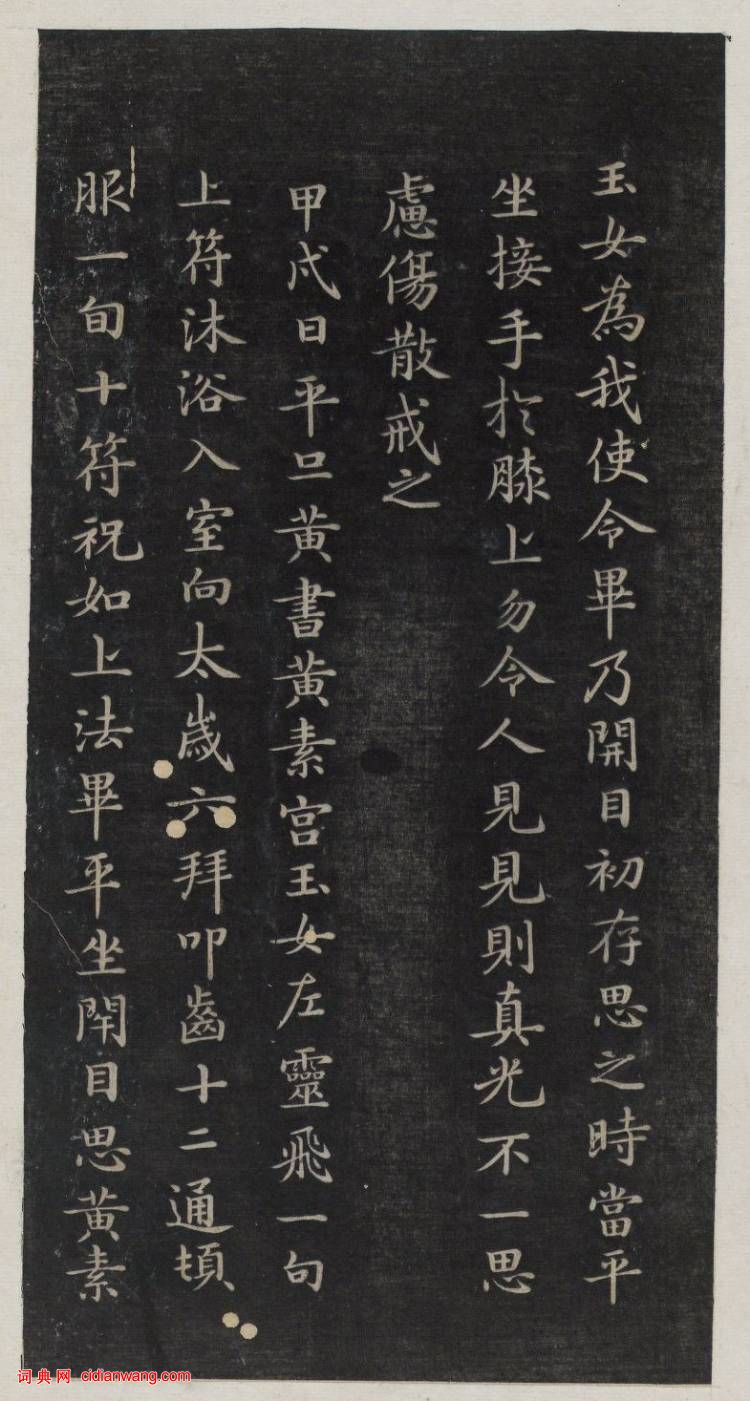 玉女為我使令畢乃開目初存思之時當平
坐接手於膝上勿令人見見則真光不一思
慮傷散戒之
甲戌日平旦黃書黃素宮玉女左靈飛一旬
上符沐浴入室向太歲六拜叩齒十二通頓
服一旬十符祝如上法畢平坐閇目思黃素
词典网 cidianwang.com